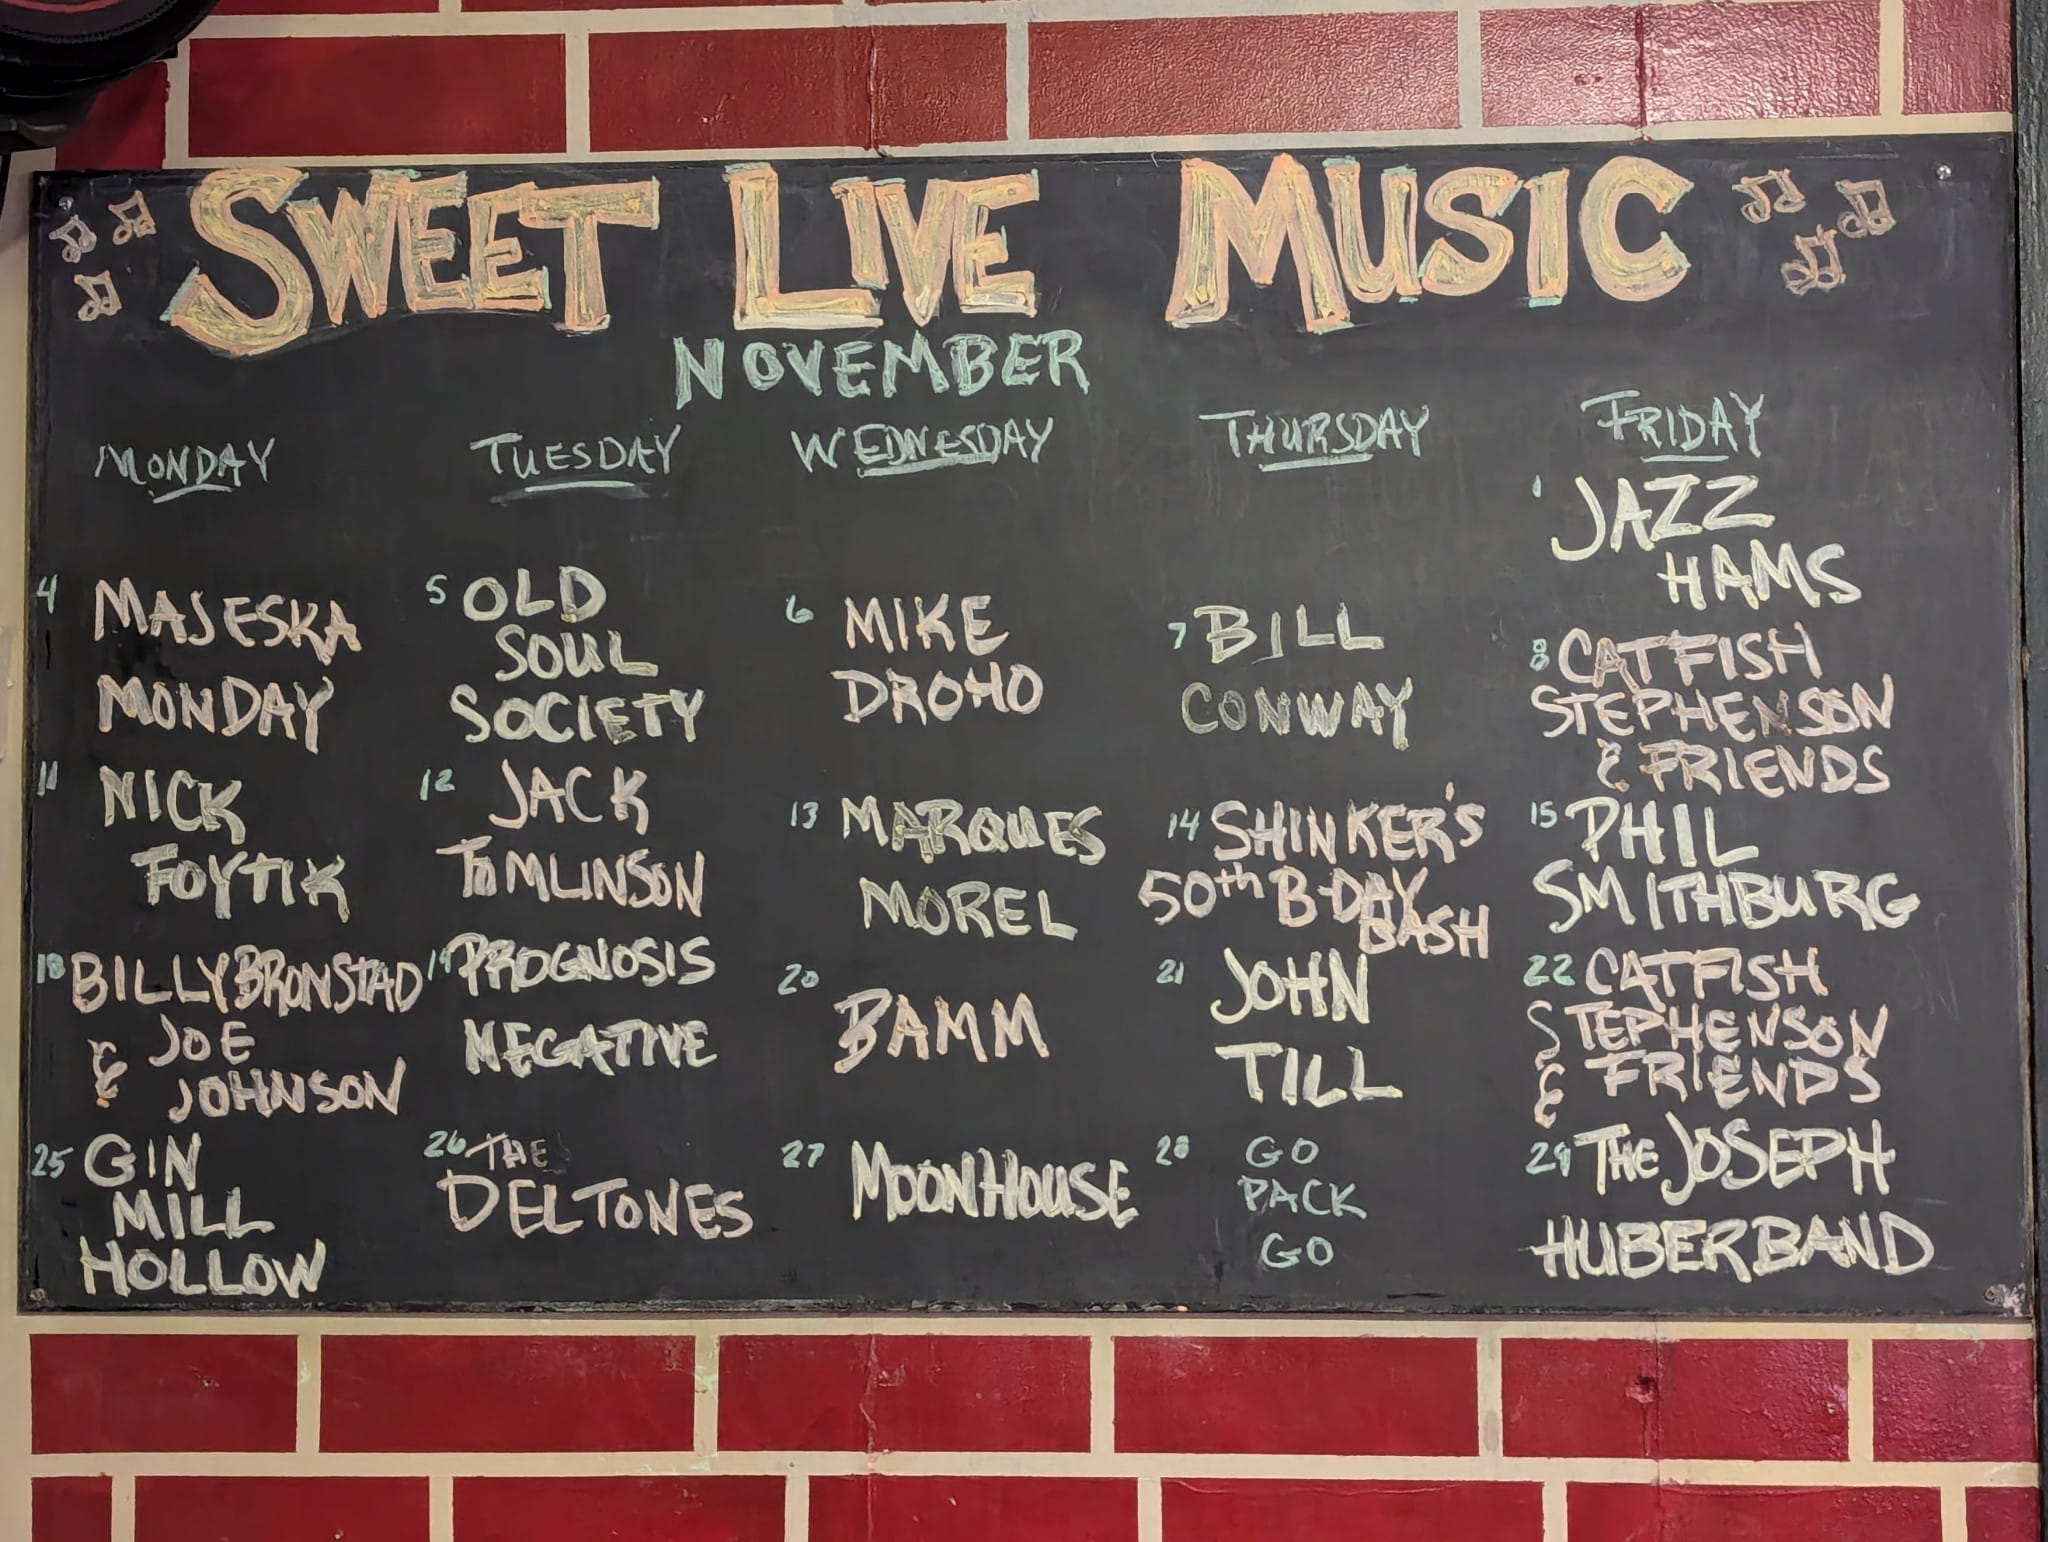 SWEET LIVE MUSIC
NOVEMBER
MONDAY TUESDAY WEDNESDAY THURSDAY FRIDAY
1 JAZZ
HAMS
4 MAJESKA
MONDAY
5 OLD
SOUL
SOCIETY
6 MIKE
DROHO
7 BILL
CONWAY
8 CATFISH
STEPHENSON
& FRIENDS
11 NICK
FOYTIK
12 JACK
TOMLINSON
13 MARQUES
MOREL
14 SHINKER'S
50th B-DAY
BASH
15 PHIL
SMITHBURG
18 BILLY BRONSTAD
& JOE
JOHNSON
19 PROGNOSIS
NEGATIVE
20 BAMM
21 JOHN
TILL
22 CATFISH
STEPHENSON
& FRIENDS
25 GIN
MILL
HOLLOW
26 THE
DELTONES
27 MOONHOUSE
28 GO
PACK
GO
29 THE JOSEPH
HUBER BAND